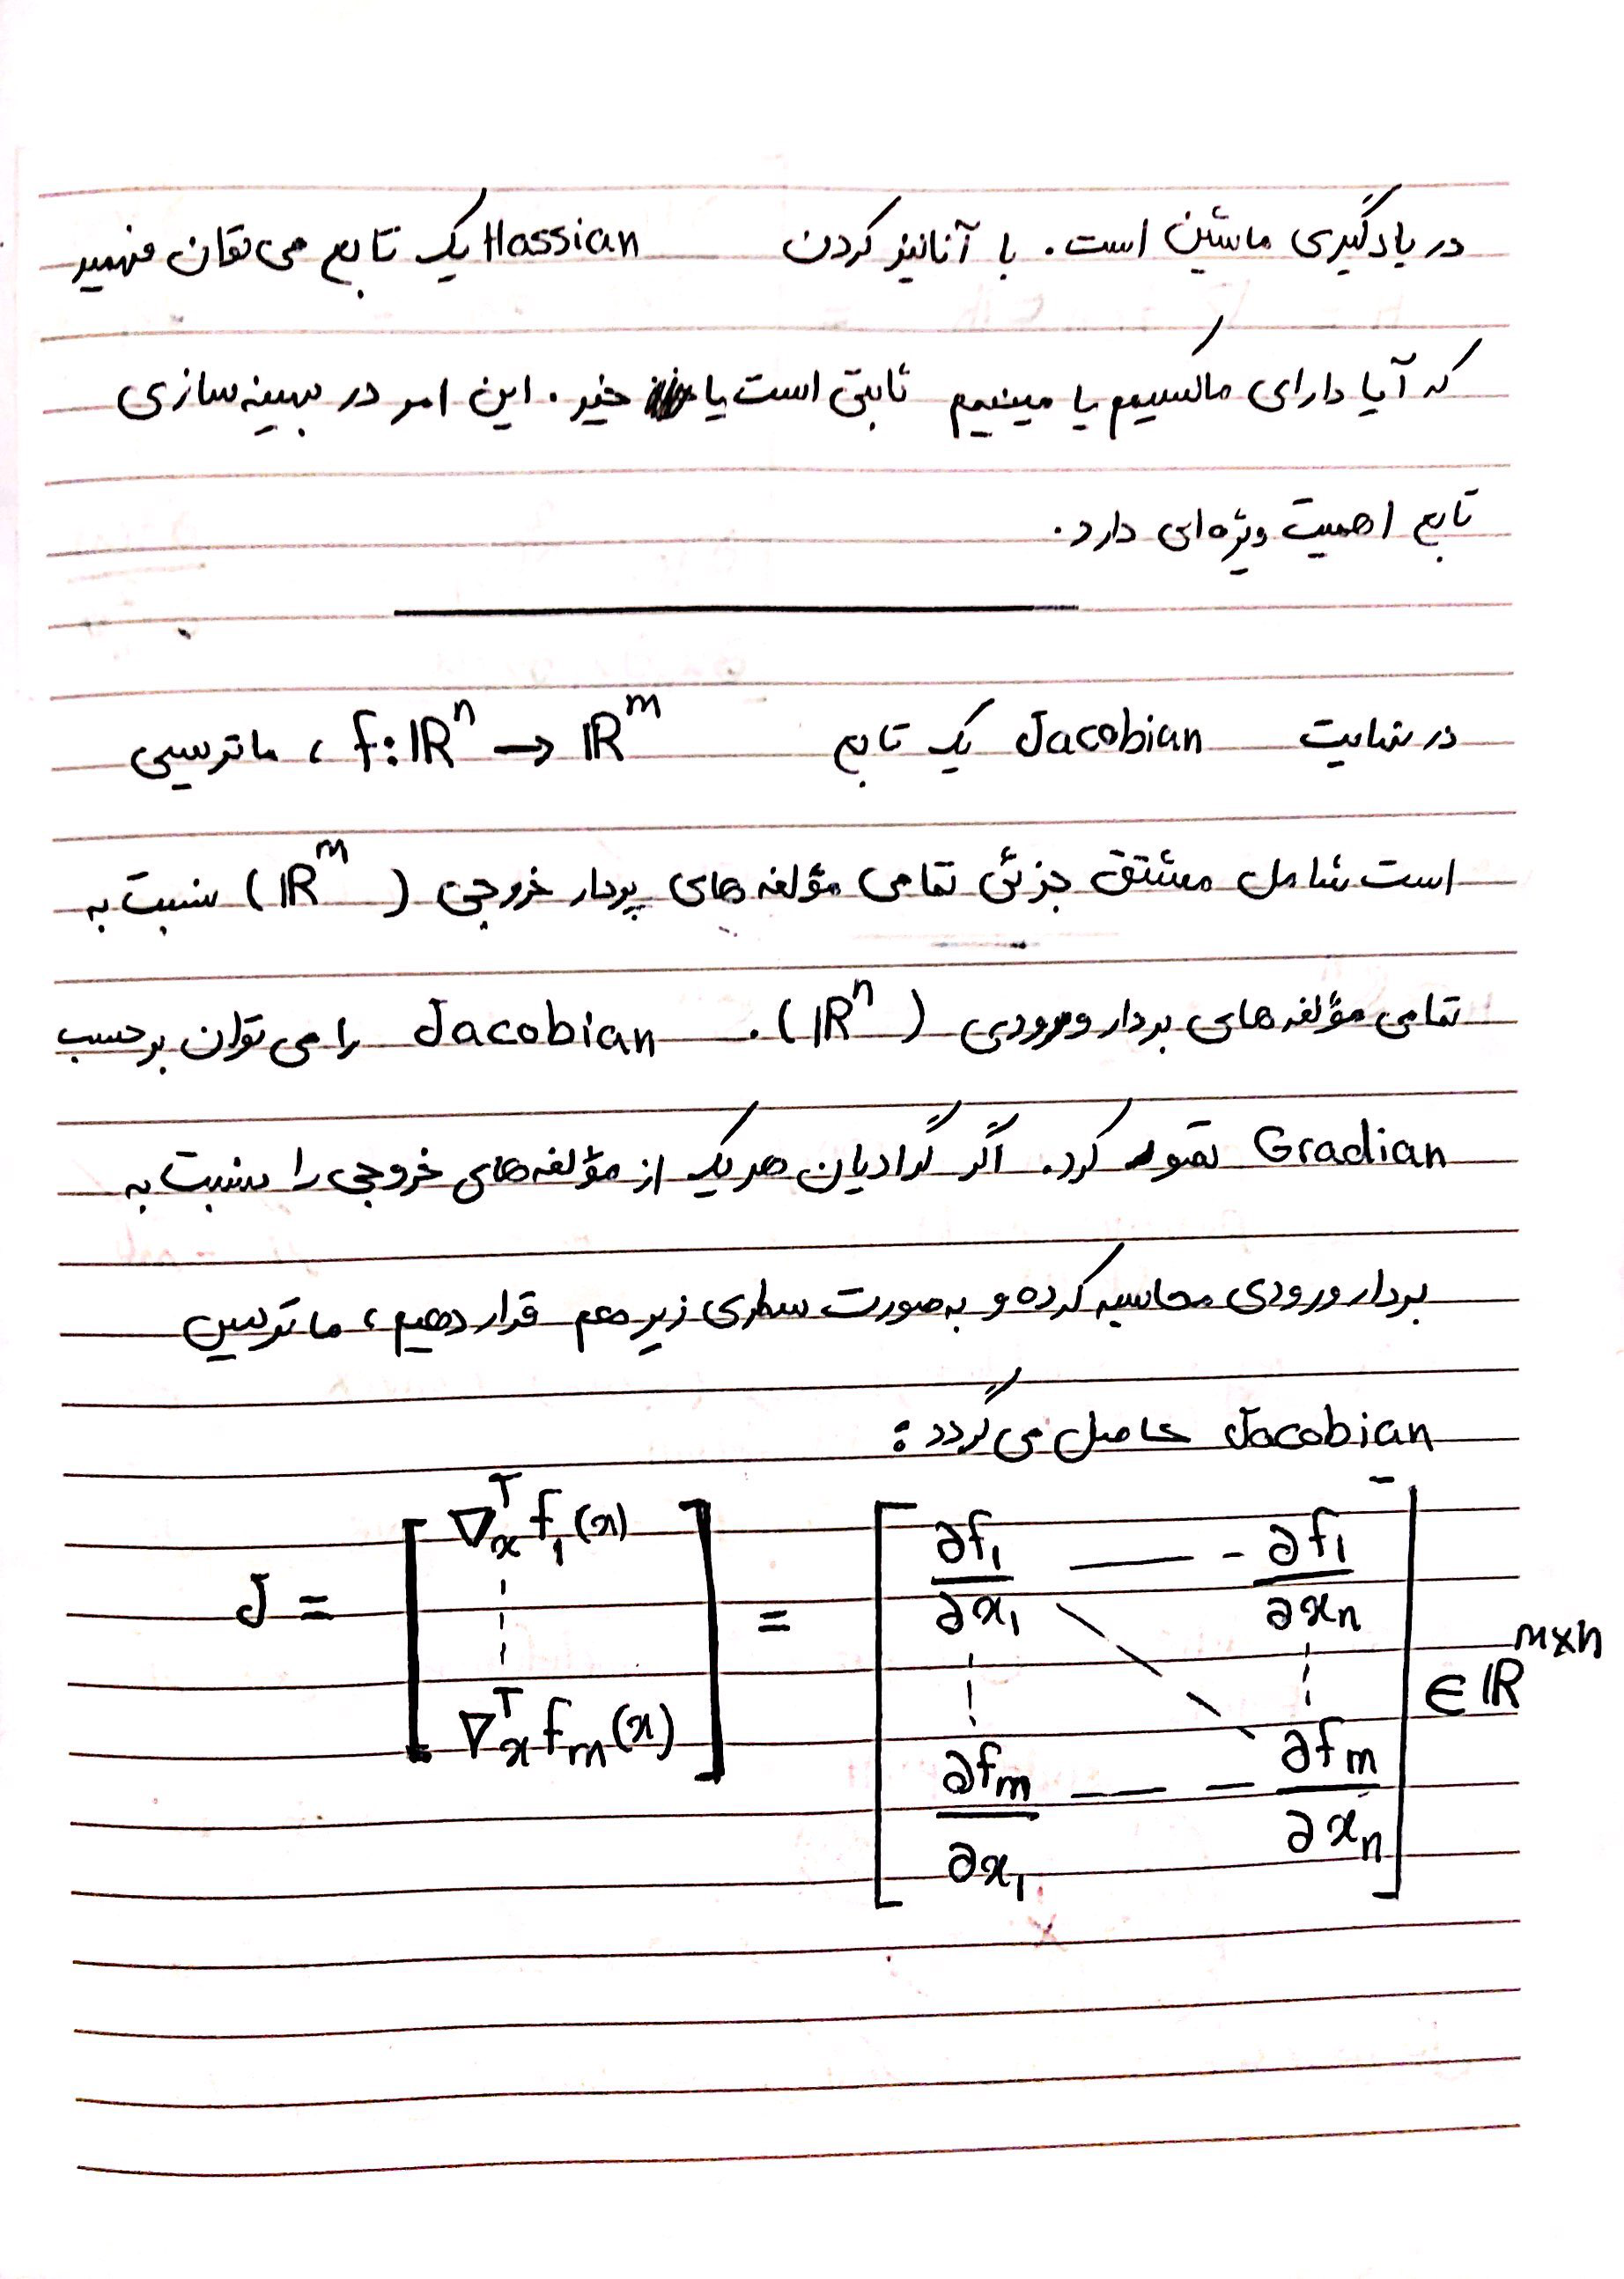 در یادگیری ماشین است. با آنالیز کردن Hassian یک تابع می‌توان فهمید
که آیا دارای ماکسیمم یا مینیمم ثابتی است یا خیر. این امر در بهینه‌سازی
تابع اهمیت ویژه‌ای دارد.
در نهایت Jacobian یک تابع f: ℝⁿ → ℝᵐ ، ماتریسی
است شامل مشتق جزئی تمامی مؤلفه‌های بردار خروجی (ℝᵐ) نسبت به
تمامی مؤلفه‌های بردار ورودی (ℝⁿ). Jacobian را می‌توان برحسب
Gradian تصور کرد. اگر گرادیان هر یک از مؤلفه‌های خروجی را نسبت به
بردار ورودی محاسبه کرده و به صورت سطری زیر هم قرار دهیم، ماتریس
Jacobian حاصل می‌گردد:
J = [ ∇ₓᵀ f₁(x) ⋮ ∇ₓᵀ fₘ(x) ] = [ ∂f₁/∂x₁ --- ∂f₁/∂xₙ ⋮ ⋱ ⋮ ∂fₘ/∂x₁ --- ∂fₘ/∂xₙ ] ∈ ℝᵐˣⁿ